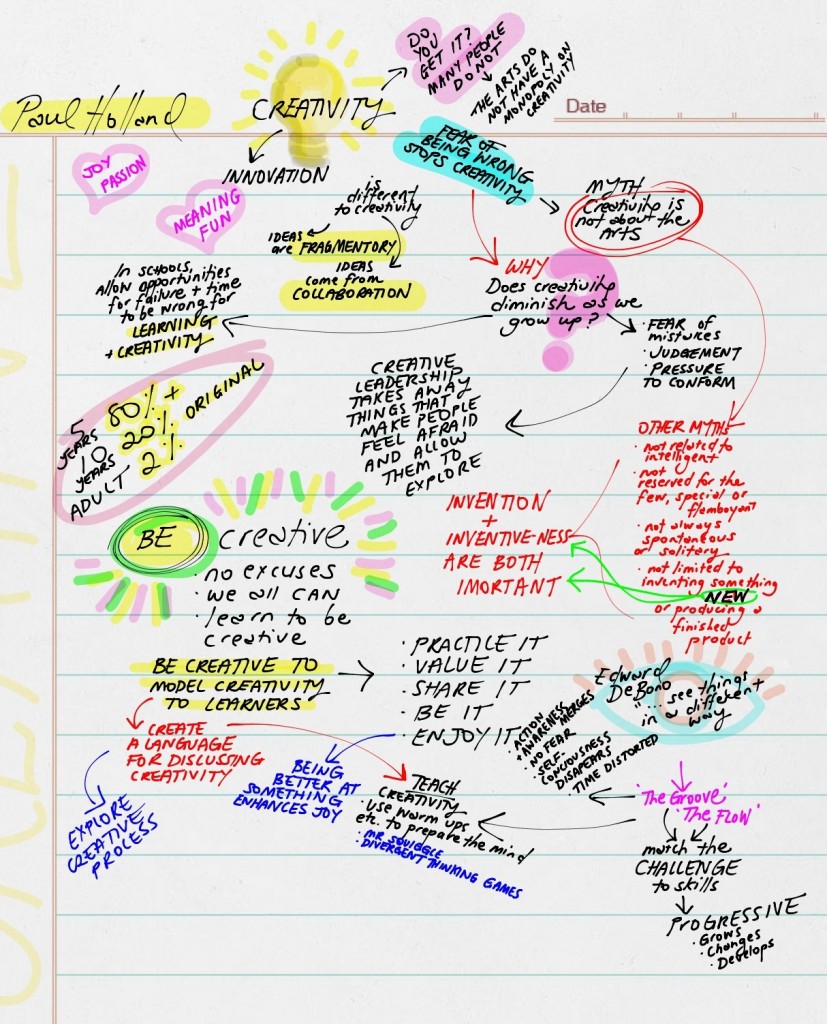 Paul Holland
CREATIVITY
DO
YOU
GET IT?
MANY PEOPLE
DO NOT
THE ARTS DO
NOT HAVE A
MONOPOLY ON
CREATIVITY
Date
FEAR OF
BEING WRONG
STOPS CREATIVITY
JOY
PASSION
MEANING
FUN
INNOVATION
is
different
to creativity
IDEAS
are FRAGMENTORY
IDEAS
come from
COLLABORATION
MYTH
Creativity is
not about the
ARTS
WHY
Does creativity
diminish as we
grow up?
In SCHOOLS,
ALLOW opportunities
for failure + time
to be wrong for
LEARNING
+ CREATIVITY
· FEAR OF
mistakes
· JUDGEMENT
· PRESSURE
TO CONFORM
CREATIVE
LEADERSHIP
TAKES AWAY
THINGS THAT
MAKE PEOPLE
FEEL AFRAID
AND ALLOW
THEM TO
EXPLORE
5 YEARS 80% +
10 YEARS 20% ORIGINAL
ADULT 2%
OTHER MYTHS
· not related to
intelligent
· not
reserved for the
few, special or
flamboyant
· not always
spontaneous
or solitary
· not limited to
inventing something
NEW
or producing a
finished
product
INVENTION
+
INVENTIVE-NESS
ARE BOTH
IMORTANT
BE creative
· no excuses
· we all CAN
· learn to be
creative
BE CREATIVE TO
MODEL CREATIVITY
TO LEARNERS
· PRACTICE IT
· VALUE IT
· SHARE IT
· BE IT
· ENJOY IT
Edward
DeBono
"... see things
in a different
way
· ACTION
+ AWARENESS MERGES
· NO FEAR
· SELF-
CONCIOUSNESS
DISAPEARS
· TIME DISTORTED
CREATE
A LANGUAGE
FOR DISCUSSING
CREATIVITY
EXPLORE
CREATIVE
PROCESS
BEING
BETTER AT
SOMETHING
ENHANCES JOY
TEACH
CREATIVITY
· use warm ups
etc. to prepare the mind
· MR SQUIGGLE
· DIVERGENT THINKING GAMES
'The Groove'
'The FLOW'
match the
CHALLENGE
to skills
PROGRESSIVE
· Grows
· Changes
· Develops